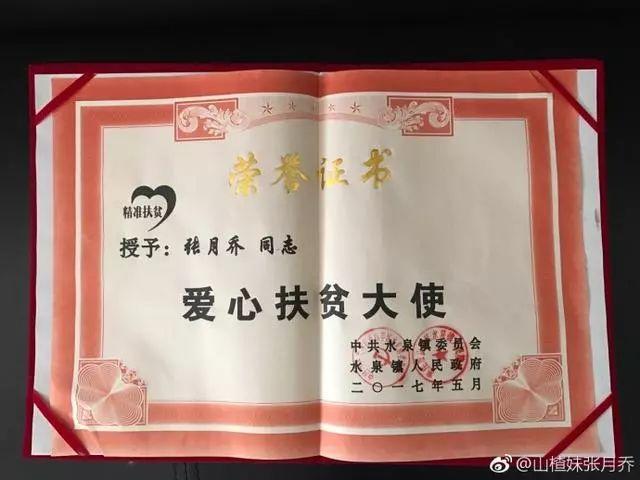 荣誉证书
精准扶贫
授予：张月乔 同志
爱心扶贫大使
中共水泉镇委员会
水泉镇人民政府
二〇一七年五月
@山楂妹张月乔